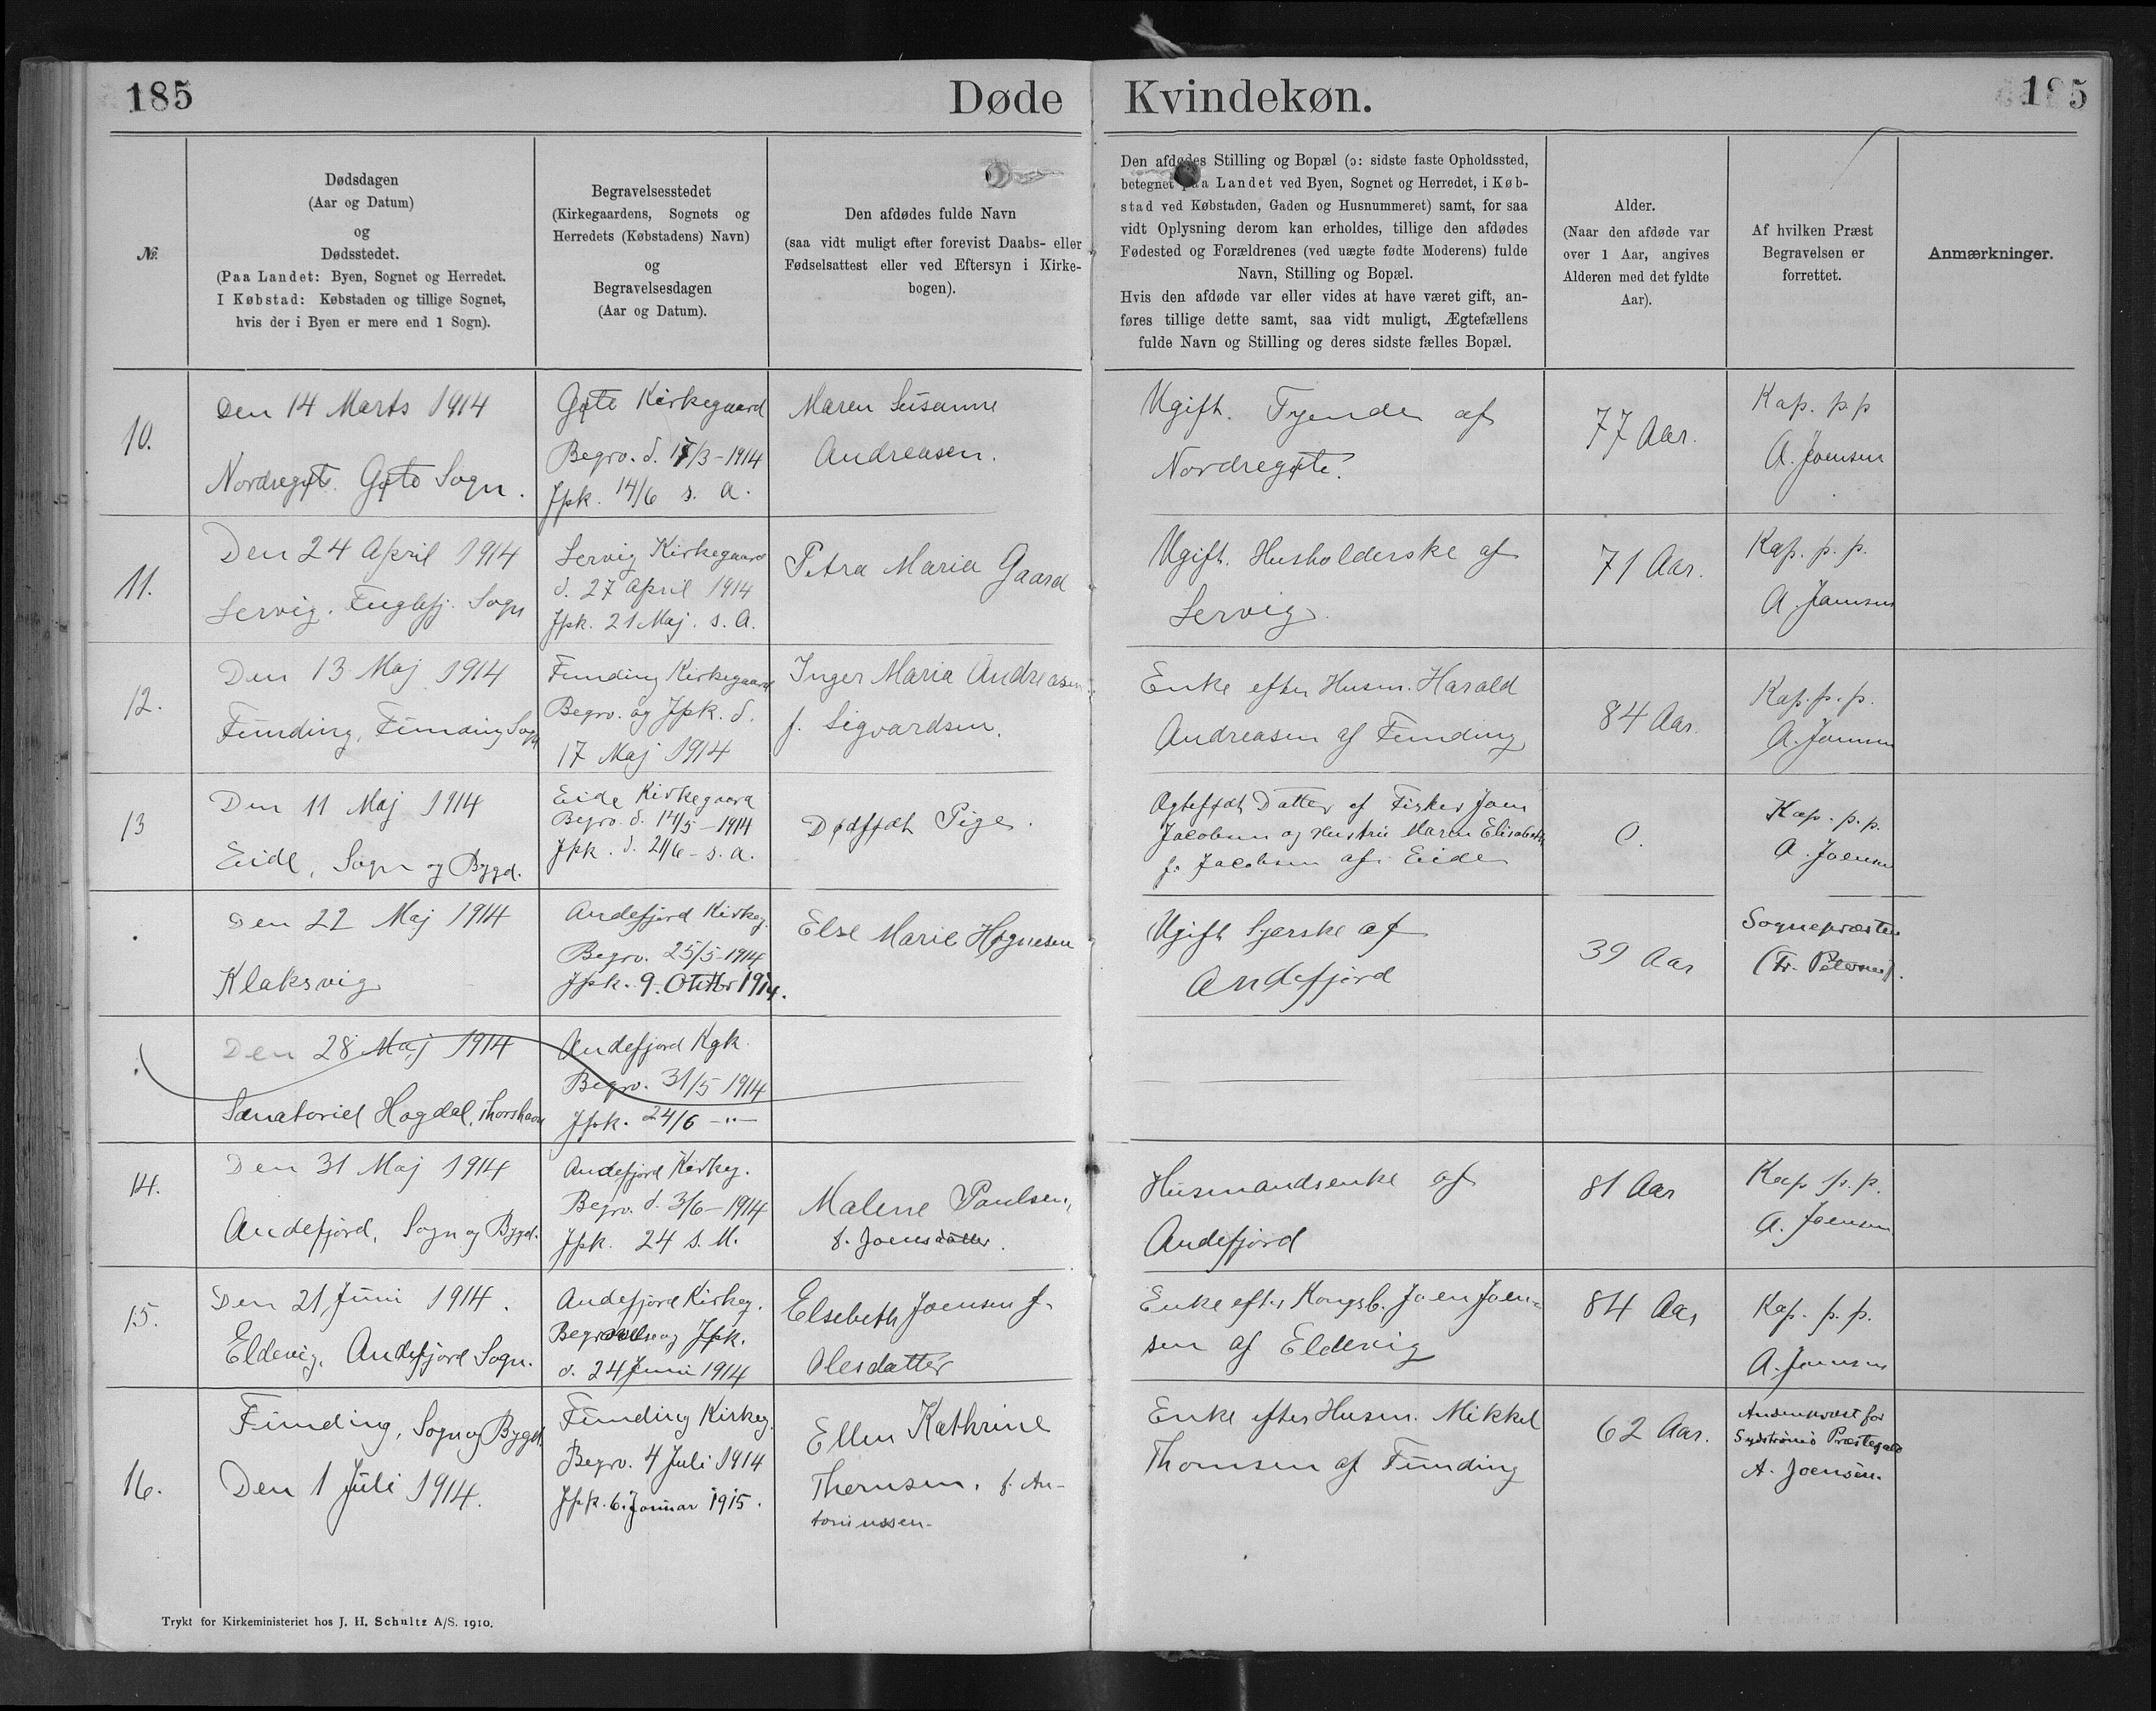 185
Døde Kvindekøn.
185
№.
Dødsdagen
(Aar og Datum)
og
Dødsstedet.
(Paa Landet: Byen, Sognet og Herredet.
I Købstad: Købstaden og tillige Sognet,
hvis der i Byen er mere end 1 Sogn).
Begravelsesstedet
(Kirkegaardens, Sognets og
Herredets (Købstadens) Navn)
og
Begravelsesdagen
(Aar og Datum).
Den afdødes fulde Navn
(saa vidt muligt efter forevist Daabs- eller
Fødselsattest eller ved Eftersyn i Kirke-
bogen).
Den afdødes Stilling og Bopæl (ɔ: sidste faste Opholdssted,
betegnet paa Landet ved Byen, Sognet og Herredet, i Køb-
stad ved Købstaden, Gaden og Husnummeret) samt, for saa
vidt Oplysning derom kan erholdes, tillige den afdødes
Fødested og Forældrenes (ved uægte fødte Moderens) fulde
Navn, Stilling og Bopæl.
Hvis den afdøde var eller vides at have været gift, an-
føres tillige dette samt, saa vidt muligt, Ægtefællens
fulde Navn og Stilling og deres sidste fælles Bopæl.
Alder.
(Naar den afdøde var
over 1 Aar, angives
Alderen med det fyldte
Aar).
Af hvilken Præst
Begravelsen er
forrettet.
Anmærkninger.
10.
Den 14 Marts 1914
Nordregøte. Gøte Sogn.
Gøte Kirkegaard
Begrv. d. 17/3-1914
Jpk. 14/6 s. A.
Maren Susanne
Andreasen.
Ugift. Tyende af
Nordregøte.
77 Aar.
Kap. p.p
A. Joensen
11.
Den 24 April 1914
Lervig. Fuglefj. Sogn
Lervig Kirkegaard
d. 27 April 1914
Jpk. 21 Maj. s. A.
Petra Maria Gaard
Ugift. Husholderske af
Lervig.
71 Aar.
Kap. p. p.
A. Joensen
12.
Den 13 Maj 1914
Funding, Funding Sogn
Funding Kirkegaard
Begrv. og Jpk. d.
17 Maj 1914
Inger Maria Andreasen
f. Sigvardsen.
Enke efter Husm. Harald
Andreasen af Funding
84 Aar.
Kap. p. p.
A. Joensen
13
Den 11 Maj 1914
Eide, Sogn og Bygd.
Eide Kirkegaard
Begrv. d. 14/5-1914
Jpk. d. 21/6-s. A.
Dødfødt Pige.
Ægtefødt Datter af Fisker Joen
Jacobsen og Hustru Maren Elisabeth
f. Jacobsen af Eide
0.
Kap. p. p.
A. Joensen
Den 22 Maj 1914
Klaksvig
Andefjord Kirkeg.
Begrv. 25/5-1914
Jpk. 9. Oktbr 1914.
Else Marie Høgnesen
Ugift Syerske af
Andefjord
39 Aar
Sognepræsten
(Fr. Petersen).
Den 28 Maj 1914
Sanatoriet Hogdal, Thorshavn
Andefjord Kgk.
Begrv. 31/5-1914
Jpk. 24/6 -"-
14.
Den 31 Maj 1914
Andefjord, Sogn og Bygd.
Andefjord Kirkeg.
Begrv. d. 3/6-1914
Jpk. 24 s. M.
Malene Poulsen,
f. Joensdatter.
Husmandsenke af
Andefjord
81 Aar
Kap p. p.
A. Joensen
15.
Den 21 Juni 1914.
Eldevig, Andefjord Sogn.
Andefjord Kirkeg.
Begravelse og Jpk.
d. 24 Juni 1914
Elsebeth Joensen f.
Olesdatter
Enke efter Kongsb. Joen Joen-
sen af Eldevig
84 Aar
Kap. p. p.
A. Joensen
16.
Funding, Sogn og Bygd.
Den 1 Juli 1914.
Funding Kirkeg.
Begrv. 4 Juli 1914
Jpk. 6. Januar 1915.
Ellen Kathrine
Thomsen, f. An-
toniussen.
Enke efter Husm. Mikkel
Thomsen af Funding
62 Aar.
Andenpræst for
Sydstrømø Præstegæld
A. Joensen.
Trykt for Kirkeministeriet hos J. H. Schultz A/S. 1910.